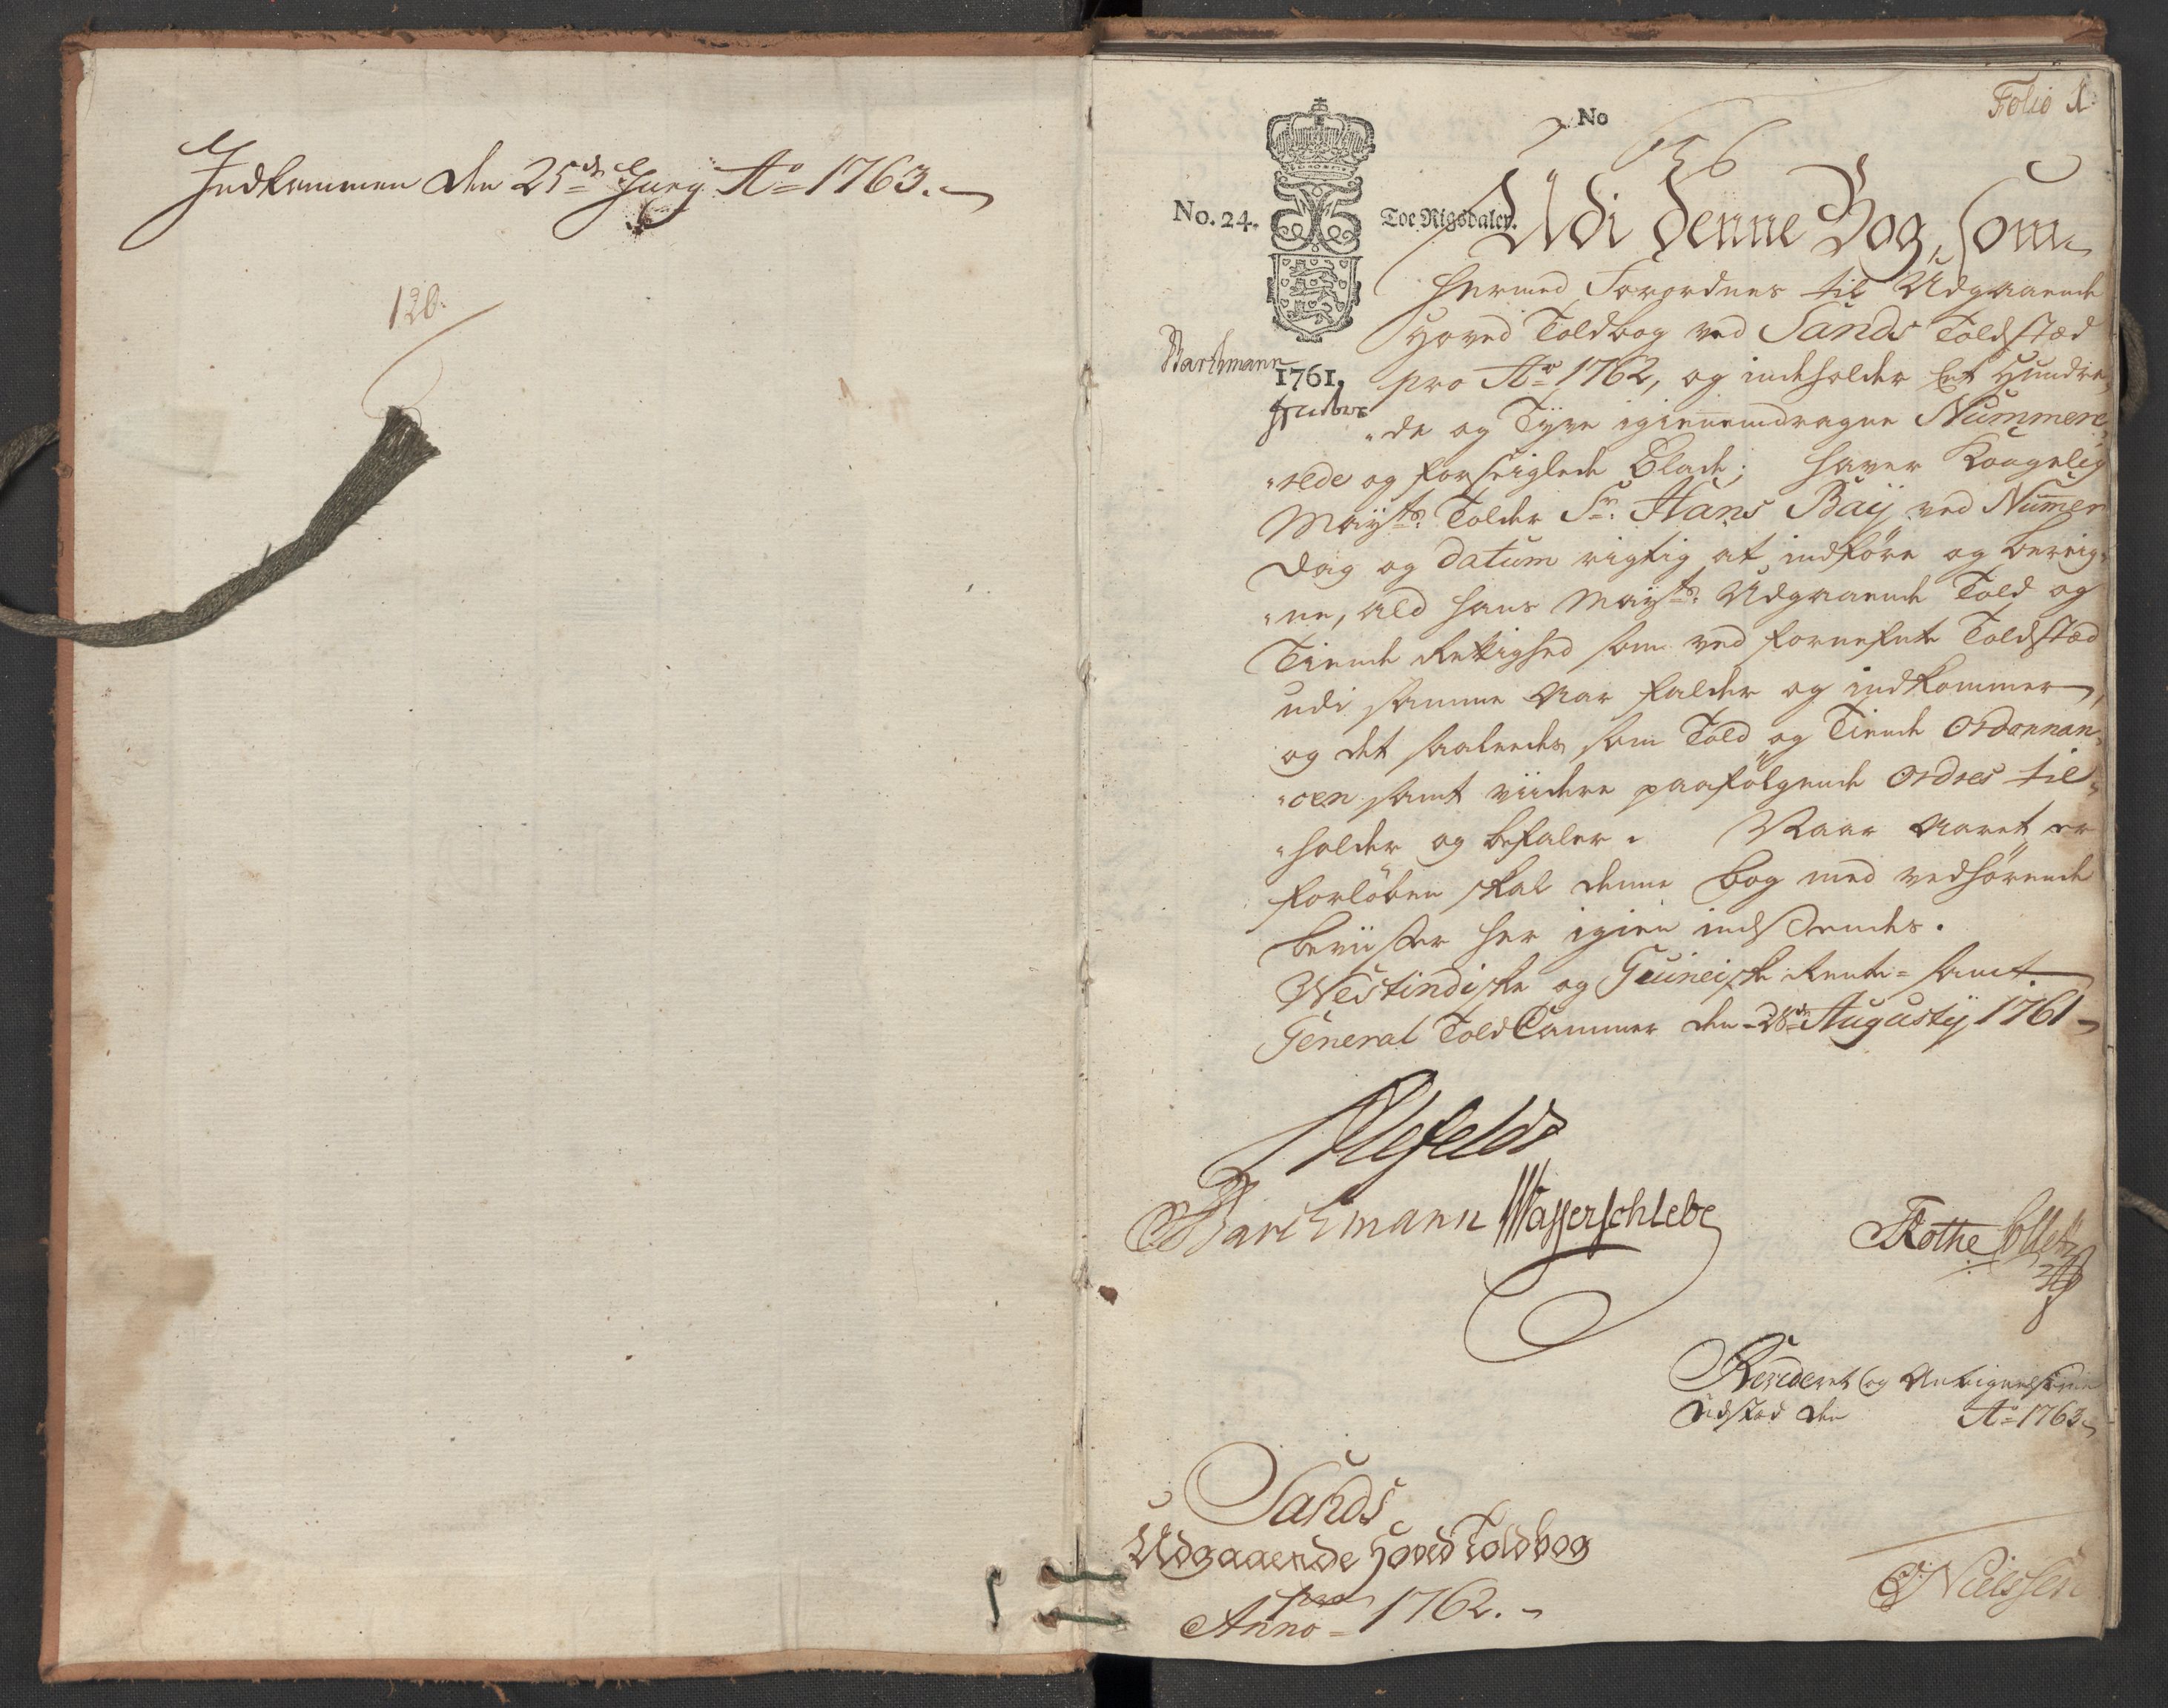 Indkommen den 25de Juny Ao 1763.
120.
Folio 1.
No
156
No. 24.
Toe Rigsdaler.
Udi denne Bog, som
hermed Forordnes til Udgaaende
Hoved Toldbog ved Sands Toldsted
Barchmann
1761.
pro Ao 1762, og indeholder Et Hundre,,
,,de og Tyve igiennemdragne Nummere,,
,,rede og forseiglede Blade; haver Kongelig
Mayts: Tolder Sr. Hans Baÿ ved Numer
Dag og Datum rigtig at indføre og bereig,,
,,ne, ald hans Mayts: Udgaaende Told og
Tiende Rettighed som ved fornefnte Toldsted
udi samme Aar falder og indkommer,
og det saaledes som Told og Tiende Ordonnan,,
,,cen samt viidere paafølgende Ordres til,,
,,holder og befaler. Naar Aaret er
forløben skal denne Bog med vedhørende
Beviister her igien indsendes.
Westindiske og Guineiske Rente- samt
General ToldCammer den 28de Augustÿ 1761
Ahlefeldt
Barchmann Wasserschlebe
Rothe Collett
Revideret og Antegnelserne
Udsted den Ao 1763
Sands
Udgaaende Hoved Toldbog
pro
Anno 1762.
Nielssen